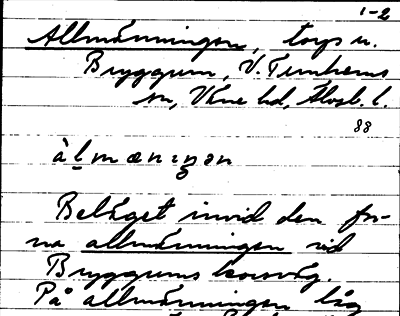 1-2
Allmänningen, torp u.
Bryggum, V. Tunhems
sn, Väne hd, Älvsb. l.
88
àl̥mænıŋən
Beläget invid den for-
na allmänningen vid
Bryggums korsväg.
På allmänningen låg